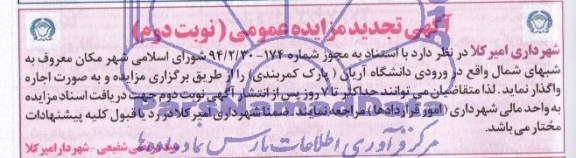 آگهی تجدید مزایده عمومی (نوبت دوم)
شهرداری امیرکلا در نظر دارد با استناد به مجوز شماره ۱۷۴-۹۴/۲/۳۰ شورای اسلامی شهر مکان معروف به
شبهای شمال واقع در ورودی دانشگاه آریان (پارک کمربندی) را از طریق برگزاری مزایده و به صورت اجاره
واگذار نماید. لذا متقاضیان می توانند حداکثر تا ۷ روز پس از انتشار آگهی نوبت دوم جهت دریافت اسناد مزایده
به واحد مالی شهرداری (امور قراردادها) مراجعه نمایند. ضمنا شهرداری امیرکلا در رد یا قبول کلیه پیشنهادات
مختار می باشد.
شفیعی - شهردار امیرکلا
ParsNamadData
مرکز فرآوری اطلاعات پارس نماد داده ها